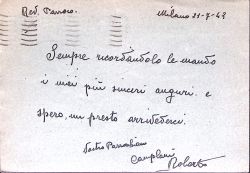 Rev. Parroco. Milano 21-7-49
Sempre ricordandolo le mando
i miei più sinceri auguri e
spero, un presto arrivederci.
Vostro Parrocchiano
Roberto